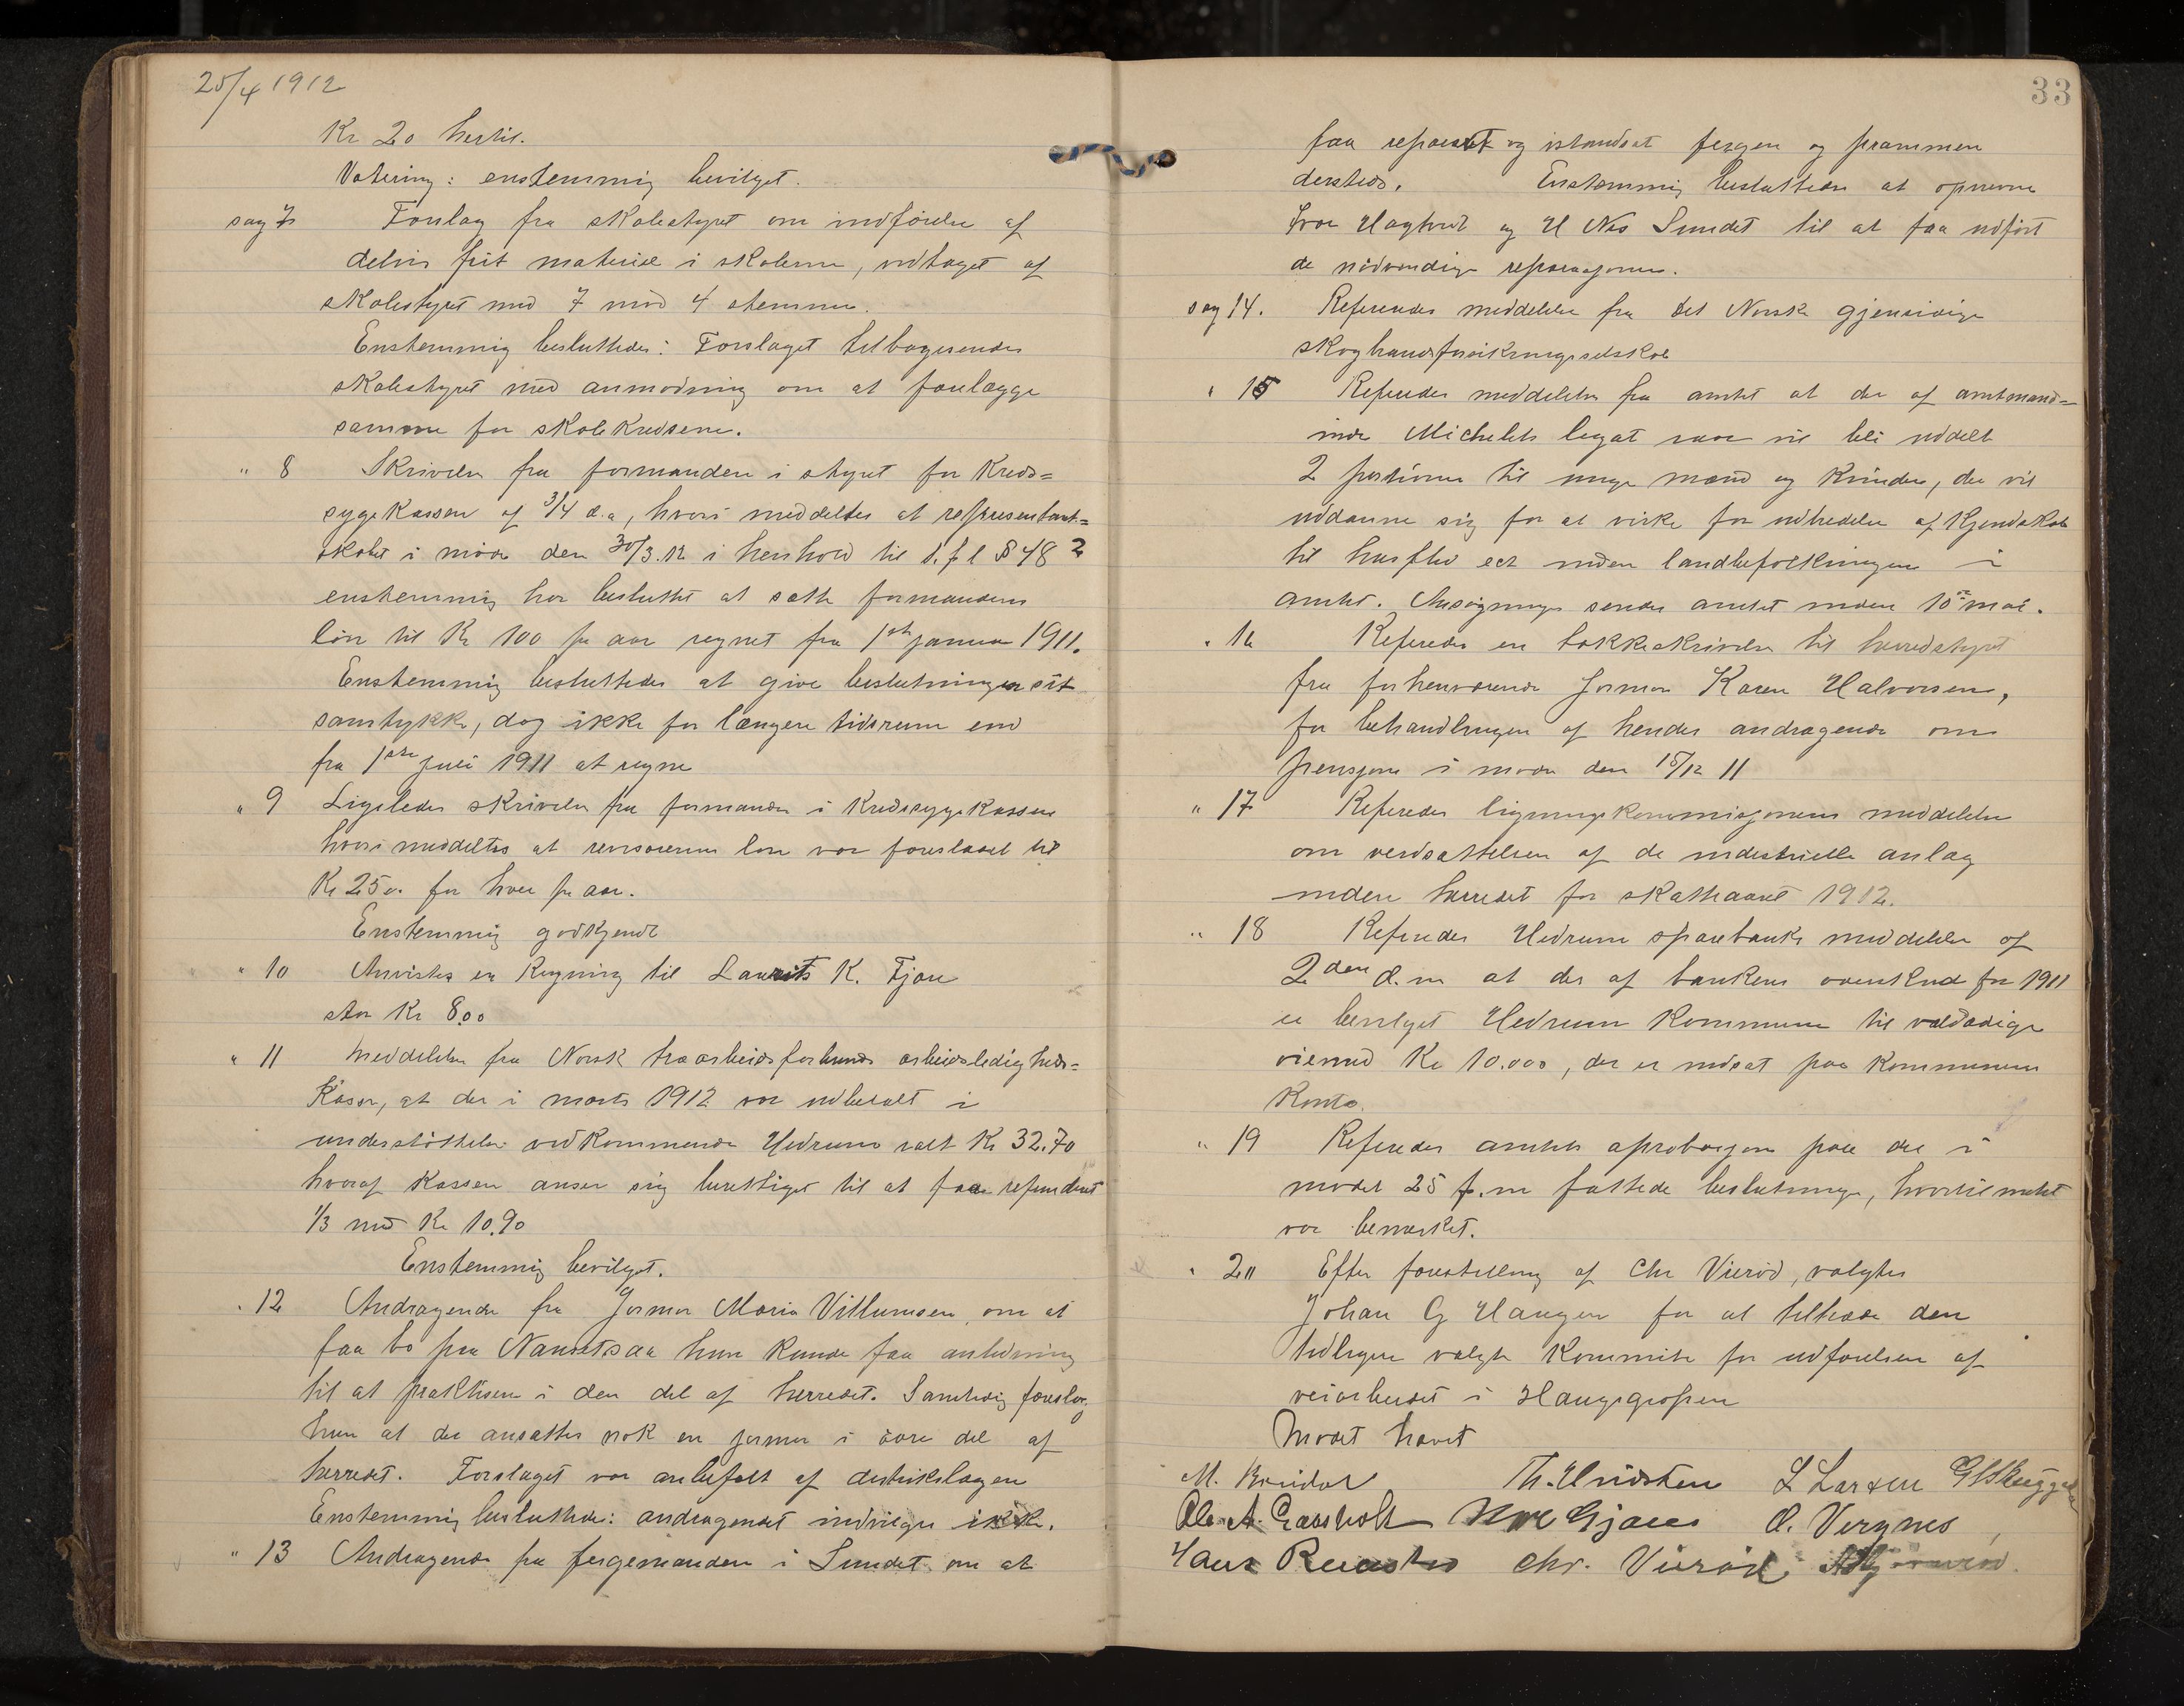 25/4 1912
Kr 20 hertil.
Votering: enstemmig bevilget.
sag 7 Forslag fra skolestyret om indførelse af
delvis frit materiel i skolerne, vedtaget af
skolestyret med 7 mod 4 stemmer.
Enstemmig besluttedes: Forslaget tilbagesendes
skolestyret med anmodning om at forelægge
samme for skolekredsene.
" 8 Skrivelse fra formanden i styret for Kreds=
sygekassen af 3/4 d.a, hvori meddeltes at representant=
skabet i møde den 30/3.12 i henhold til s.f.l § 48 2
enstemmig har besluttet at sætte formandens
løn til Kr 100 pr aar regnet fra 1ste januar 1911.
Enstemmig besluttedes at give beslutningen sit
samtykke, dog ikke for længere tidsrum end
fra 1ste juli 1911 at regne
" 9 Ligeledes skrivelse fra formanden i Kredssygekassen
hvori meddeltes at revisorernes løn var foreslaaet til
Kr 25.00 for hver pr aar.
Enstemmig godkjendt
" 10 Anvistes en Regning til Laurits K. Fjære
stor Kr 8,00
" 11 Meddelelse fra Norsk træarbeidsforbunds arbeidsledigheds=
Kasse, at der i marts 1912 var udbetalt i
understøttelse vedkommende Hedrum ialt Kr 32.70
hvoraf Kassen anser sig berettiget til at faa refunderet
1/3 med Kr 10.90
Enstemmig bevilget.
" 12 Andragende fra Jormor Maria Villumsen, om at
faa bo paa Nanset saa hun kunde faa anledning
til at praktisere i den del af herredet. Samtidig foreslog
hun at der ansættes nok en jormor i øvre del af
herredet. Forslaget var anbefalt af distrikslægen
Enstemmig besluttedes: andragendet indvilges ikke.
" 13 Andragende fra fergemanden i Sundet om at
33
faa reparert og istandsat fergen og prammen
dersteds. Enstemmig besluttedes at opnevne
Ivar Hagtvedt og H Nes Sundet til at faa udført
de nødvendige reparasjoner.
sag 14. Referertes meddelelse fra det Norske gjensidige
skogbrandforsikringsselskab
" 15 Refereredes meddelelse fra amtet at der af amtmand=
inde Michelets legat iaar vil bli uddelt
2 portioner til unge mænd og kvinder, der vil
uddanne sig for at virke for udbredelse af Kjendskab
til husflid ect inden landbefolkningen i
amtet. Ansøgninger sendes amtet inden 10de mai.
" 16 Referedes en takkeskrivelse til herredstyret
fra forhenværende Jormor Karen Halvorsen,
for behandlingen af hendes andragende om
pensjon i møde den 15/12 11
" 17 Referedes ligningskommisjonens meddelelse
om verdsættelsen af de industrielle anlæg
inden herredet for skatteaaret 1912.
" 18 Referedes Hedrum sparebanks meddelelse af
2den d.m at der af bankens overskud for 1911
er bevilget Hedrum Kommune til veldædige
øiemed Kr 10.000, der er indsat paa Kommunens
Konto.
" 19 Referedes amtets aprobasjon paa de i
mødet 25 f.m fattede beslutninger, hvortil intet
var bemerket.
" 20 Efter forestilling af Chr Vierød, valgtes
Johan G Haugen for at tiltræde den
tidligere valgte Kommite for udførelsen af
veiarbeidet i Haugegropen
Mødet hævet
M. Th. Hvidsten L Larsen
Ole A. Gjærsholt Gjære O. Vergnes
Hans Chr. Vierød